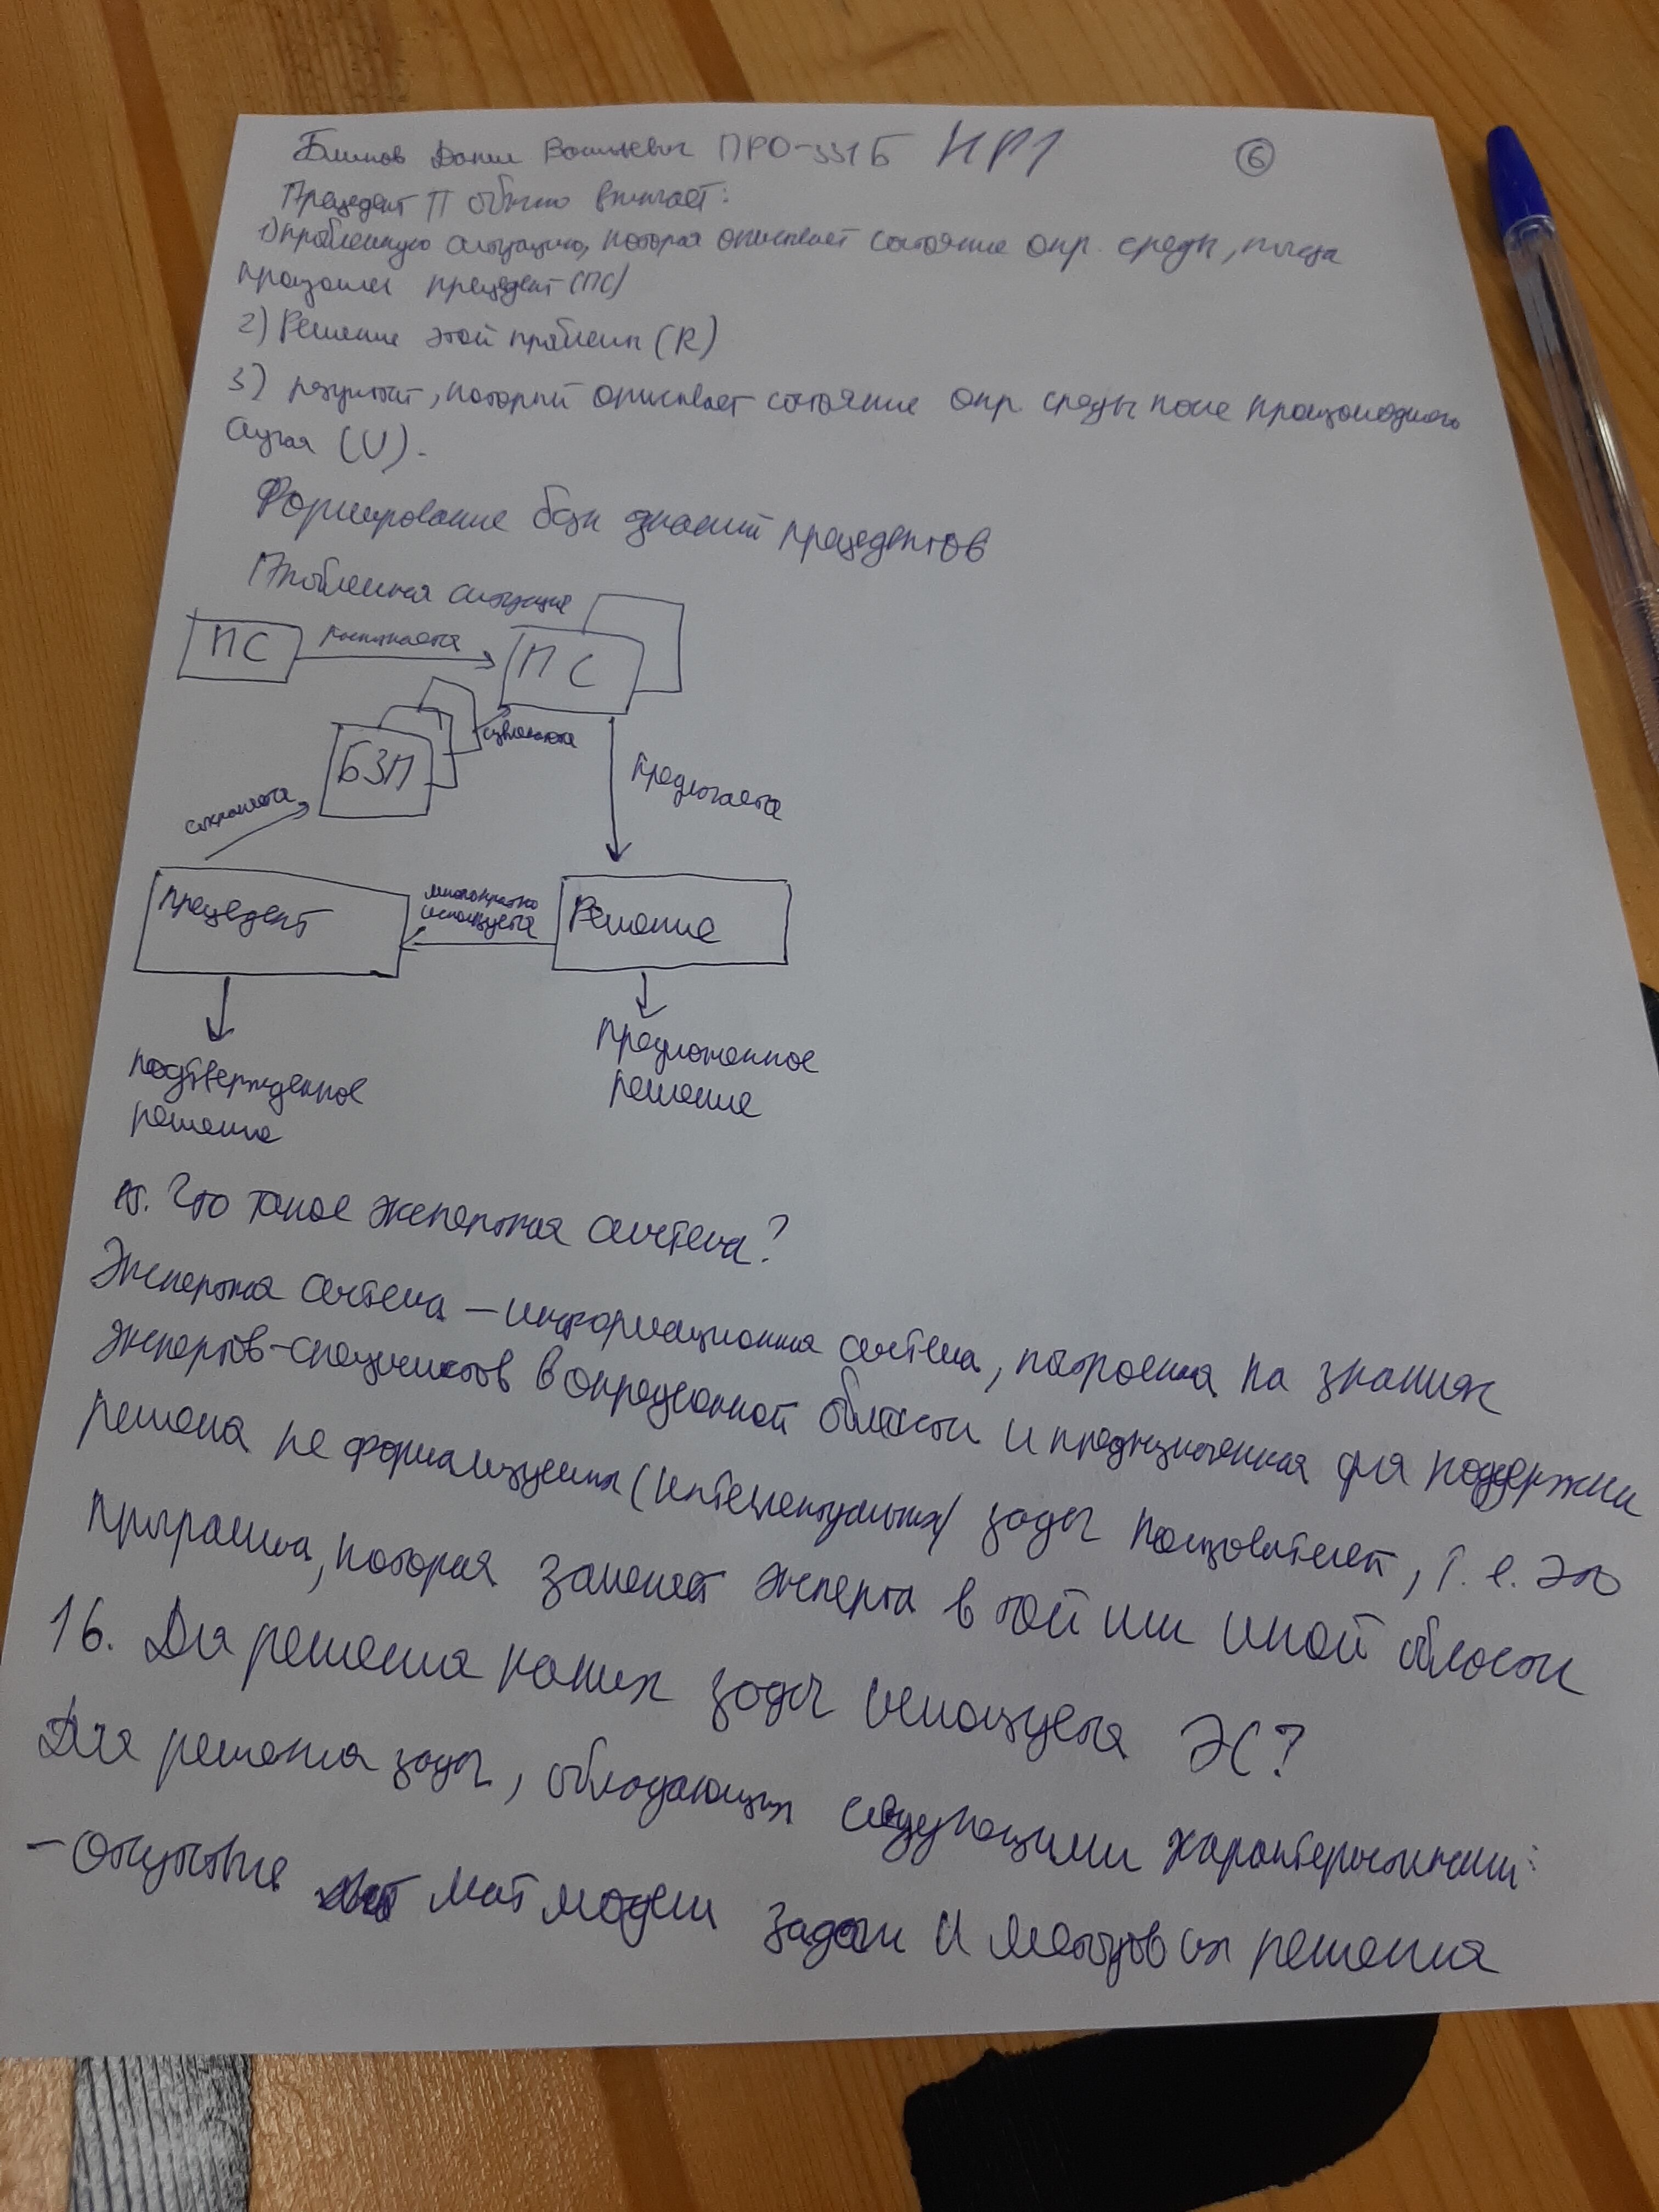 Данил Васильевич ПРО-331Б КР1 6
Прецедент П обычно включает:
1) проблемную ситуацию, которая описывает состояние опр. среды, когда
произошел прецедент (ПС)
2) Решение этой проблемы (R)
3) результат, который описывает состояние опр. среды после произошедшего
случая (U).
Формирование базы знаний прецедентов
Проблемная ситуация
ПС
ПС
БЗП
сравнивается
предлагается
сохраняется
прецедент
многократно
используется
Решение
подтвержденное
решение
Предложенное
решение
15. Что такое экспертная система?
Экспертная система – информационная система, построенная на знаниях
экспертов-специалистов в определенной области и предназначенная для поддержки
решения не формализуемых (интеллектуальных) задач пользователей, т.е. это
программа, которая заменяет эксперта в той или иной области
16. Для решения каких задач используется ЭС?
Для решения задач, обладающих следующими характеристиками:
– отсутствие мат модели задачи и методов их решения